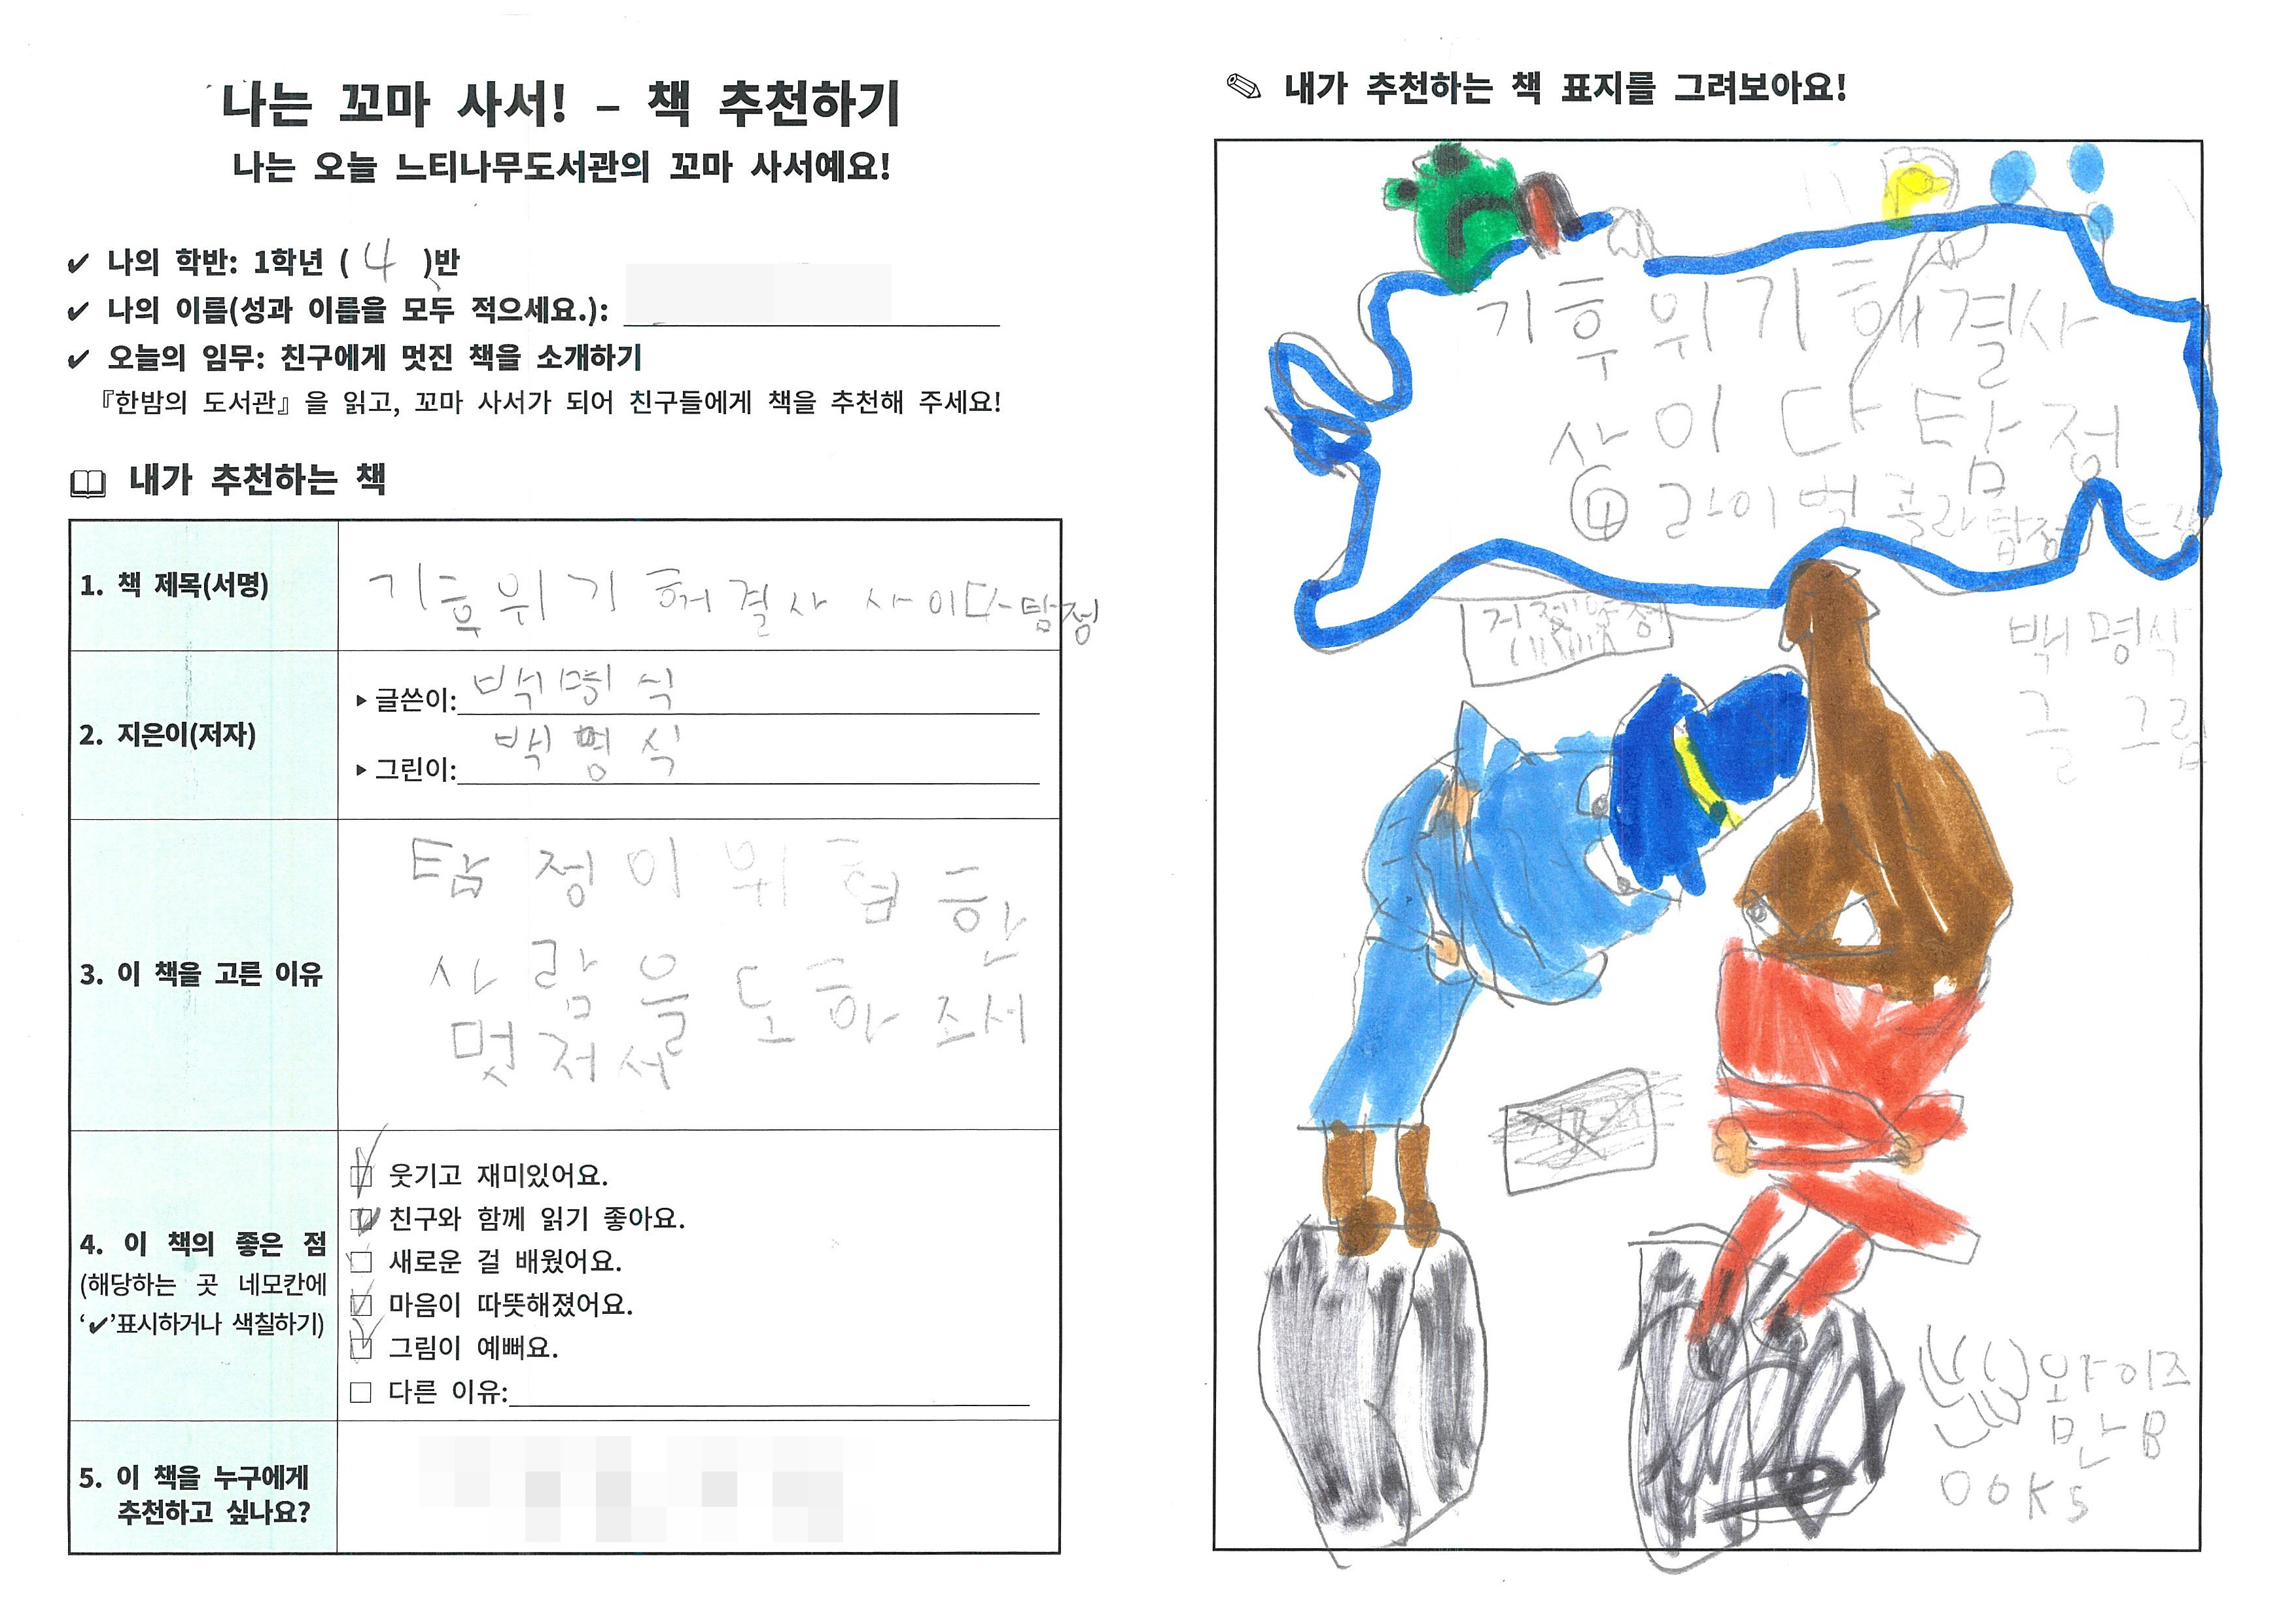 나는 꼬마 사서! – 책 추천하기
나는 오늘 느티나무도서관의 꼬마 사서예요!
✔ 나의 학반: 1학년 ( 4 )반
✔ 나의 이름(성과 이름을 모두 적으세요.):
✔ 오늘의 임무: 친구에게 멋진 책을 소개하기
『한밤의 도서관』을 읽고, 꼬마 사서가 되어 친구들에게 책을 추천해 주세요!
내가 추천하는 책
1. 책 제목(서명)
기후위기 해결사 사이다탐정
2. 지은이(저자)
▸글쓴이: 백명식
▸그린이: 백명식
3. 이 책을 고른 이유
탐정이 위험한
사람을 도하조서
멋저서
4. 이 책의 좋은 점
(해당하는 곳 네모칸에
‘✔’표시하거나 색칠하기)
☑ 웃기고 재미있어요.
☑ 친구와 함께 읽기 좋아요.
☐ 새로운 걸 배웠어요.
☑ 마음이 따뜻해졌어요.
☑ 그림이 예뻐요.
☐ 다른 이유:
5. 이 책을 누구에게
추천하고 싶나요?
✎ 내가 추천하는 책 표지를 그려보아요!
기후위기해결사
사이다탐정
④ 라이벌 콜라탐정
백명식
글 그림
와이즈
만 B
ooks